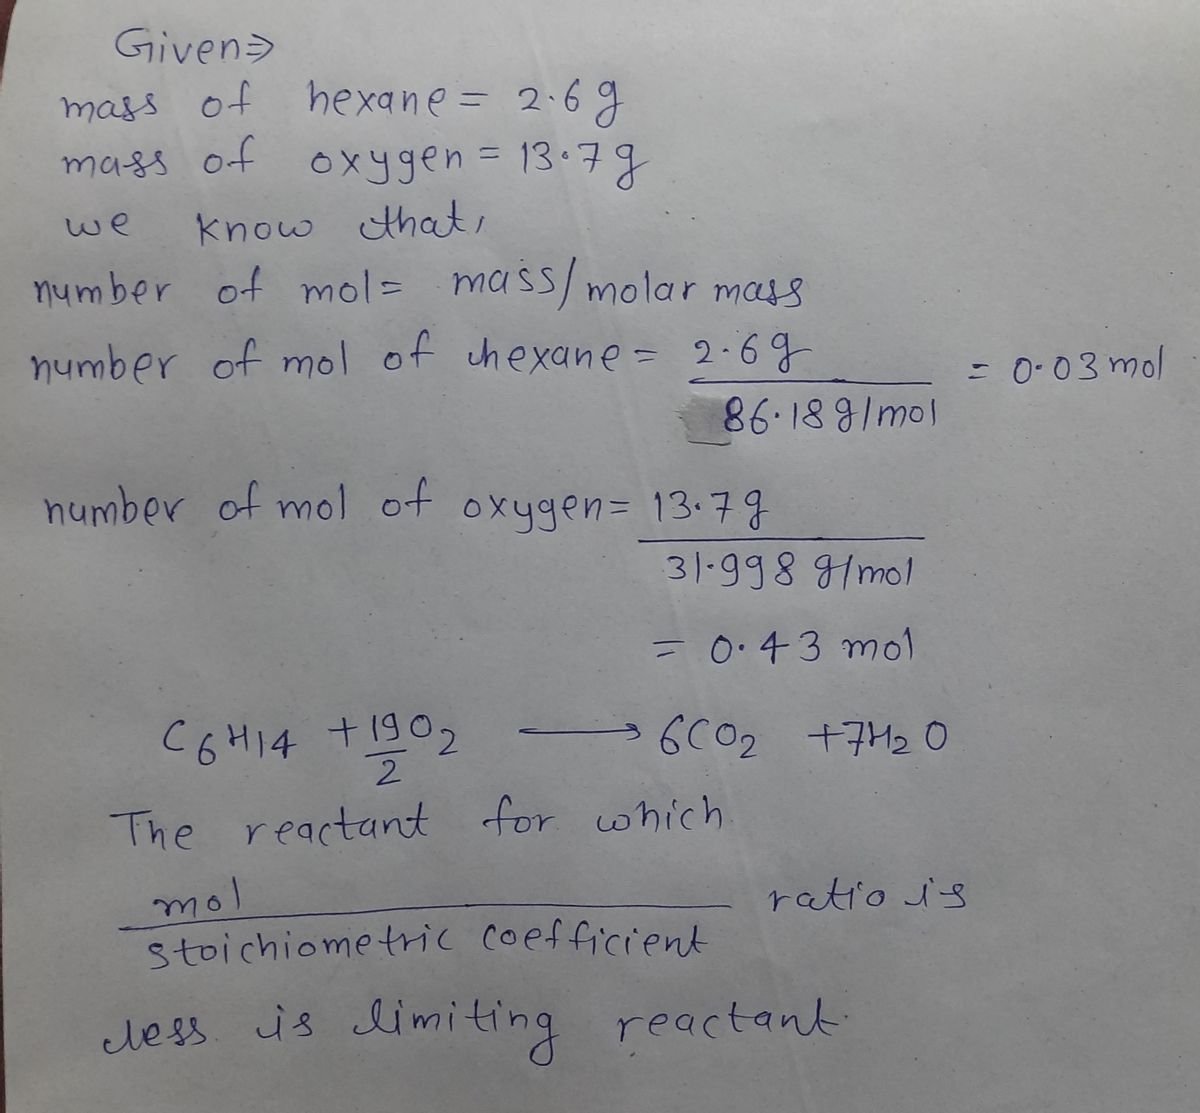 Given⇒
mass of hexane = 2.6 g
mass of oxygen = 13.7 g
we know that,
number of mol = mass/molar mass
number of mol of hexane = 2.6 g
= 0.03 mol
86.18 g/mol
number of mol of oxygen = 13.7 g
31.998 g/mol
= 0.43 mol
C6H14 + 19/2 O2 ⟶ 6CO2 + 7H2O
The reactant for which
mol
ratio is
stoichiometric coefficient
less is limiting reactant.